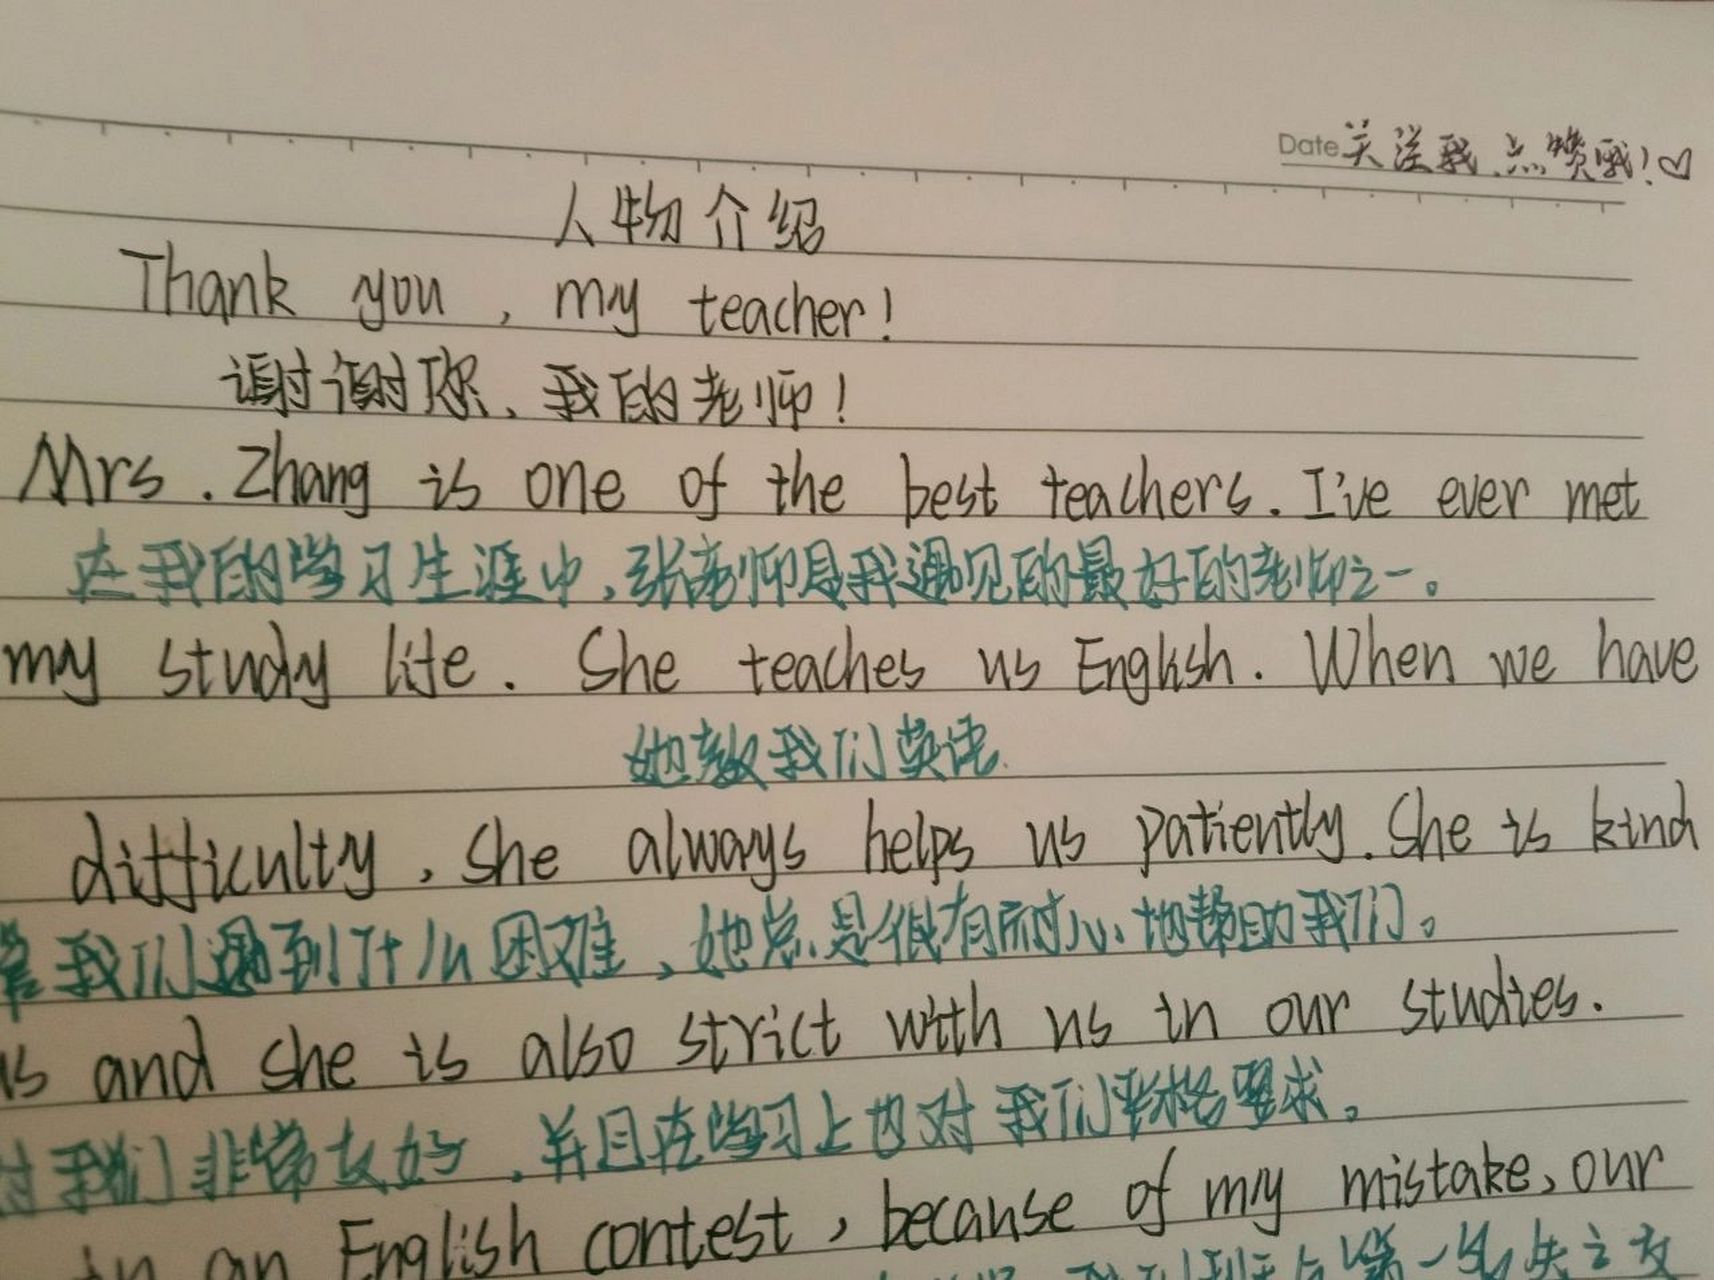 Date 关注我,点赞哦!♡
人物介绍
Thank you, my teacher!
谢谢你,我的老师!
Mrs. Zhang is one of the best teachers. I've ever met
在我的学习生涯中,张老师是我遇见的最好的老师之一。
my study life. She teaches us English. When we have
她教我们英语.
difficulty, she always helps us patiently. She is kind
我们遇到什么困难,她总是很有耐心地帮助我们。
us and she is also strict with us in our studies.
对我们非常友好,并且在学习上也对我们严格要求。
in an English contest, because of my mistake, our
第一名失之交